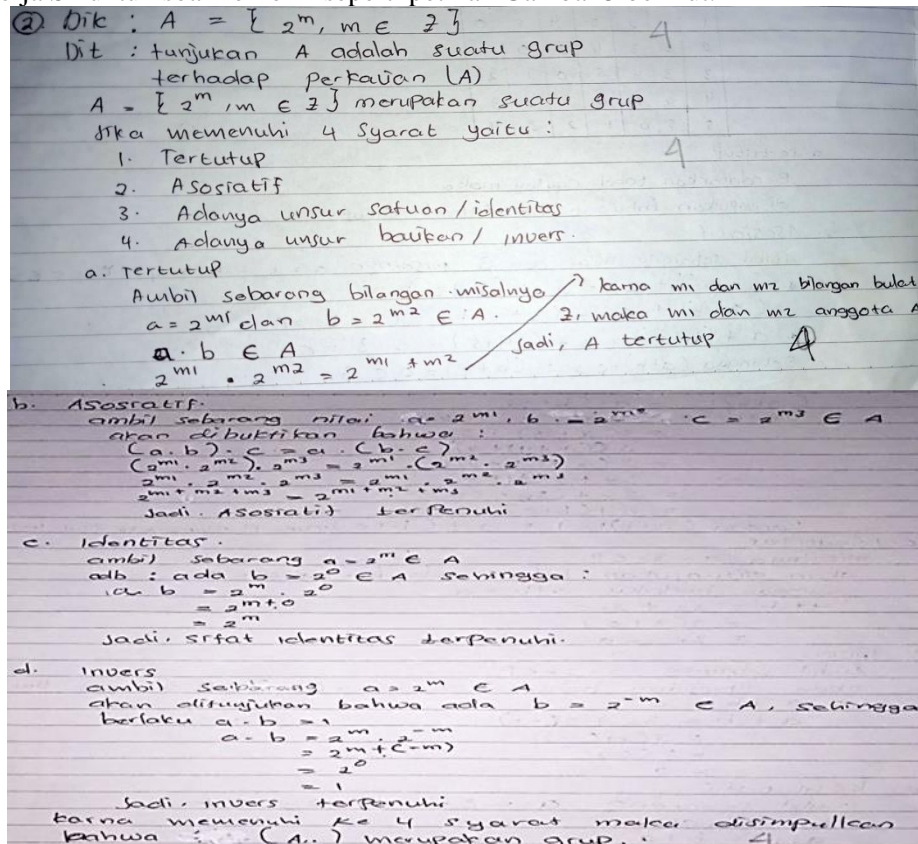 ② Dik : A = { 2^m, m ∈ Z }
4
Dit : tunjukan A adalah suatu grup
terhadap perkalian (A)
A = { 2^m, m ∈ Z } merupakan suatu grup
Jika memenuhi 4 syarat yaitu :
4
1. Tertutup
2. Asosiatif
3. Adanya unsur satuan / identitas
4. Adanya unsur balikan / invers.
a. Tertutup
Ambil sebarang bilangan misalnya
a = 2^m1 dan b = 2^m2 ∈ A.
a . b ∈ A
2^m1 . 2^m2 = 2^m1 + m2
karna m1 dan m2 bilangan bulat
Z, maka m1 dan m2 anggota A
Jadi, A tertutup 4
b. Asosiatif.
ambil sebarang nilai a = 2^m1, b = 2^m2 . c = 2^m3 ∈ A
akan dibuktikan bahwa :
(a . b) . c = a . (b . c)
(2^m1 . 2^m2) . 2^m3 = 2^m1 . (2^m2 . 2^m3)
2^m1 . 2^m2 . 2^m3 = 2^m1 . 2^m2 . 2^m3
2^m1 + m2 + m3 = 2^m1 + m2 + m3
Jadi . Asosiatif terpenuhi
c. Identitas .
ambil sebarang a = 2^m ∈ A
adb : ada b = 2^0 ∈ A sehingga :
a . b = 2^m . 2^0
= 2^m+0
= 2^m
Jadi, sifat identitas terpenuhi.
d. Invers
ambil sebarang a = 2^m ∈ A
akan ditunjukan bahwa ada b = 2^-m ∈ A, sehingga
berlaku a . b = 1
a . b = 2^m . 2^-m
= 2^m + (-m)
= 2^0
= 1
Jadi, invers terpenuhi
karna memenuhi ke 4 syarat maka disimpulkan
bahwa : (A..) merupakan grup.
4